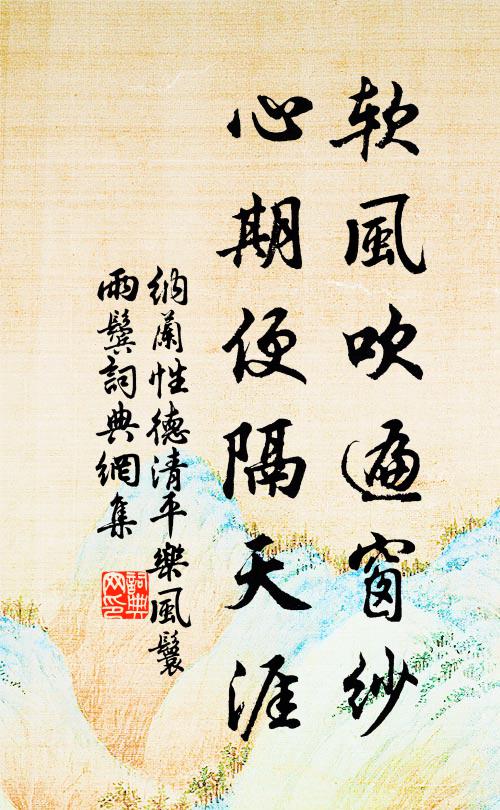 软風吹遍窗紗
心期便隔天涯
納蘭性德清平樂風鬟
雨鬢詞典網集
詞典網印